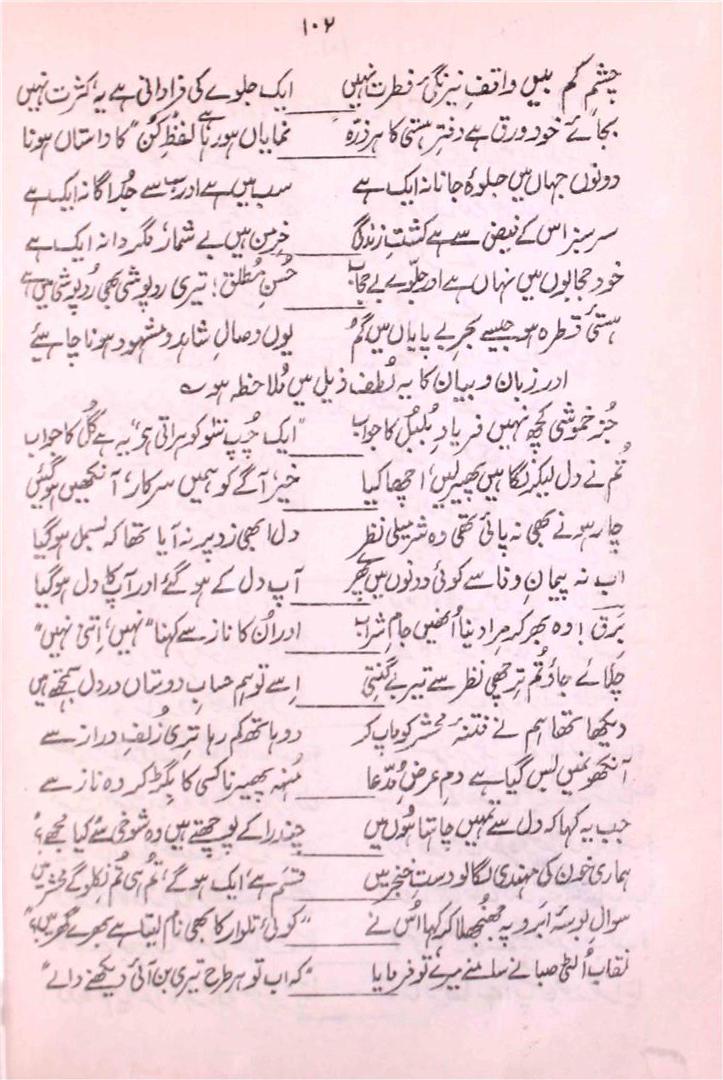 ۱۰۲
چشمِ کم بیں واقفِ نیرنگیِٔ فطرت نہیں ایک جلوے کی فراوانی ہے یہ کثرت نہیں
بجائے خود ورق ہے دفترِ ہستی کا ہر ذرّہ نمایاں ہو رہا ہے لفظِ "کُن" کا داستاں ہونا
دونوں جہاں میں جلوۂ جانانہ ایک ہے سب میں ہے اور سب سے جُداگانہ ایک ہے
سرسبز اس کے فیض سے ہے کشتِ زندگی خرمن ہیں بے شمار مگر دانہ ایک ہے
خود حجابوں میں نہاں ہے اور جلوے بے حجاب حُسنِ مُطلق! تیری روپوشی بھی رُوپوشی میں ہے
ہستیٔ قطرہ ہو جیسے بحرِ بے پایاں میں گُم یوں وصالِ شاہد و مشہود ہونا چاہیئے
اور زبان و بیان کا یہ لُطف ذیل میں مُلاحظہ ہو۔
جُز خموشی کچھ نہیں فریادِ بُلبُل کا جواب "ایک چُپ سَو کو ہراتی ہی" یہ ہے گُل کا جواب
تُم نے دل لیکر نگاہیں پھیر لیں، اچھا کیا خیر، آگے کو ہمیں سرکار، آنکھیں ہو گئیں
چار ہونے بھی نہ پائی تھی وہ شرمیلی نظر دل ابھی زد پر نہ آیا تھا کہ بسمل ہو گیا
اب نہ پیمانِ وفا سے کوئی دونوں میں پھرے آپ دل کے ہو گئے اور آپکا دل ہو گیا
برق! وہ بھر کر مرا دینا اُنھیں جامِ شراب اور اُن کا ناز سے کہنا "نہیں، اِتنی نہیں"
چلائے جاؤ تُم ترچھی نظر سے تیر بے گنتی اِسے تو ہم حسابِ دوستاں در دل سمجھتے ہیں
دیکھا تھا ہم نے فتنۂ محشر کو ماپ کر دو ہاتھ کم رہا تری زُلفِ دراز سے
آنکھوں میں بس گیا ہے دمِ عرضِ مُدّعا مُنہہ پھیرنا کسی کا بگڑ کر وہ ناز سے
جب یہ کہا کہ دل سے تمہیں چاہتا ہُوں میں چندرا کے پوچھتے ہیں وہ شوخی سے کیا مجھے؟
ہماری خون کی مہندی لگا لو دستِ خنجر میں قسم ہے، ایک ہو گے، تم ہی تُم نِکلو گے محشر میں
سوالِ بوسۂ ابرو پہ جھنجھلا کر کہا اُس نے "کوئی تلوار کا بھی نام لیتا ہے بھرے گھر میں؟"
نقاب اُلٹی صبا نے سامنے میرے، تو فرمایا "کہ اب تو ہر طرح تیری بن آئی دیکھنے والے"